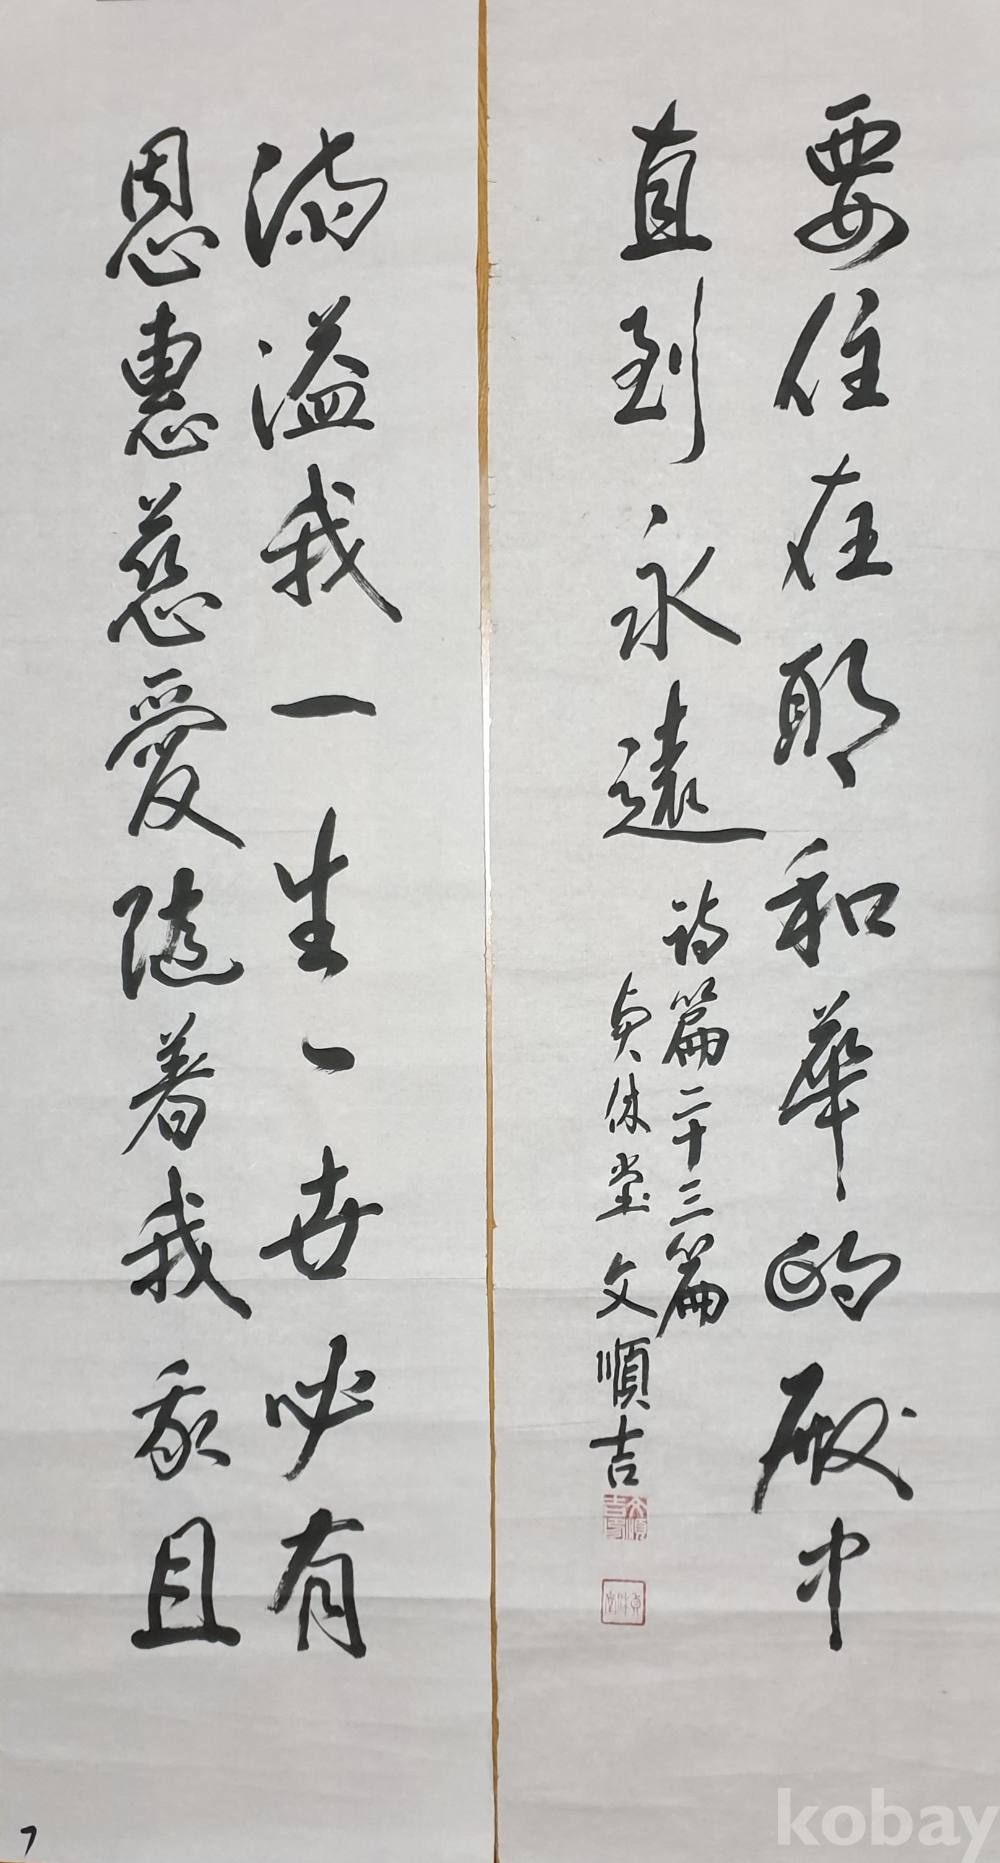 滿溢我一生一世必有
恩惠慈愛隨着我我且
要住在耶和華的殿中
直到永遠
詩篇二十三篇
貞休堂 文順吉
文順吉印
7
kobay